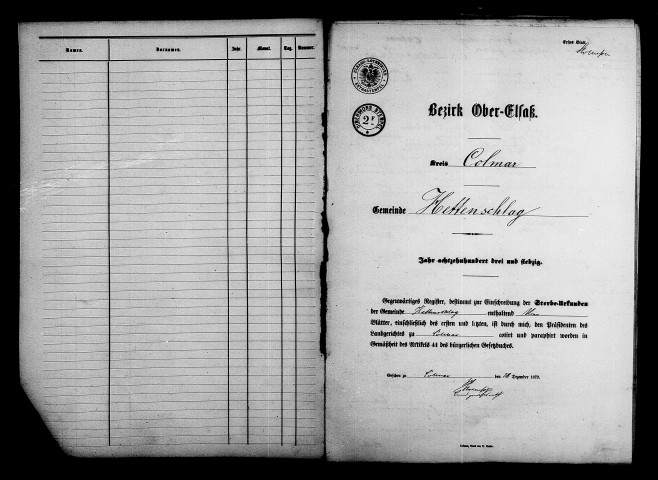 Namen. Vornamen. Jahr. Monat. Tag. Nummer.
Erstes Blatt.
Bezirk Ober-Elsaß.
Kreis Colmar
Gemeinde Hettenschlag
Jahr achtzehnhundert drei und siebzig.
Gegenwärtiges Register, bestimmt zur Einschreibung der Sterbe-Urkunden
der Gemeinde Hettenschlag enthaltend
Blätter, einschließlich des ersten und letzten, ist durch mich, den Präsidenten des
Landgerichtes zu Colmar cotirt und paraphirt worden in
Gemäßheit des Artikels 41 des bürgerlichen Gesetzbuches.
Gesehen zu Colmar den 18 Dezember 1872.